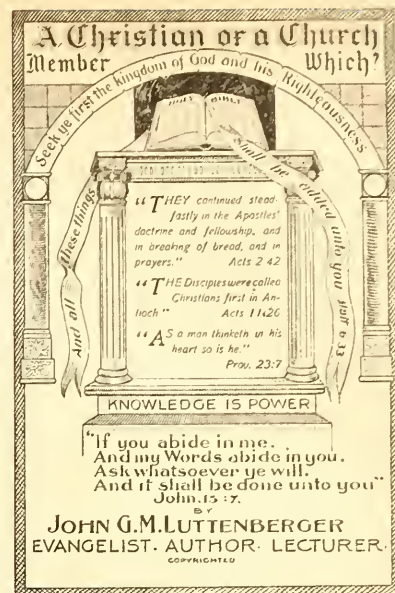 A Christian or a Church
Member Which?
Seek ye first the kingdom of God and his Righteousness
And all these things
shall be added unto you Matt 6:33
HOLY BIBLE
"THEY continued stead-
fastly in the Apostles'
doctrine and fellowship, and
in breaking of bread, and in
prayers." Acts 2 42
"THE Disciples were called
Christians first in An-
tioch" Acts 11:26
"AS a man thinketh in his
heart so is he."
Prov. 23:7
KNOWLEDGE IS POWER
"If you abide in me.
And my Words abide in you.
Ask whatsoever ye will.
And it shall be done unto you"
John. 15:7.
BY
JOHN G.M.LUTTENBERGER
EVANGELIST. AUTHOR. LECTURER.
COPYRIGHTED